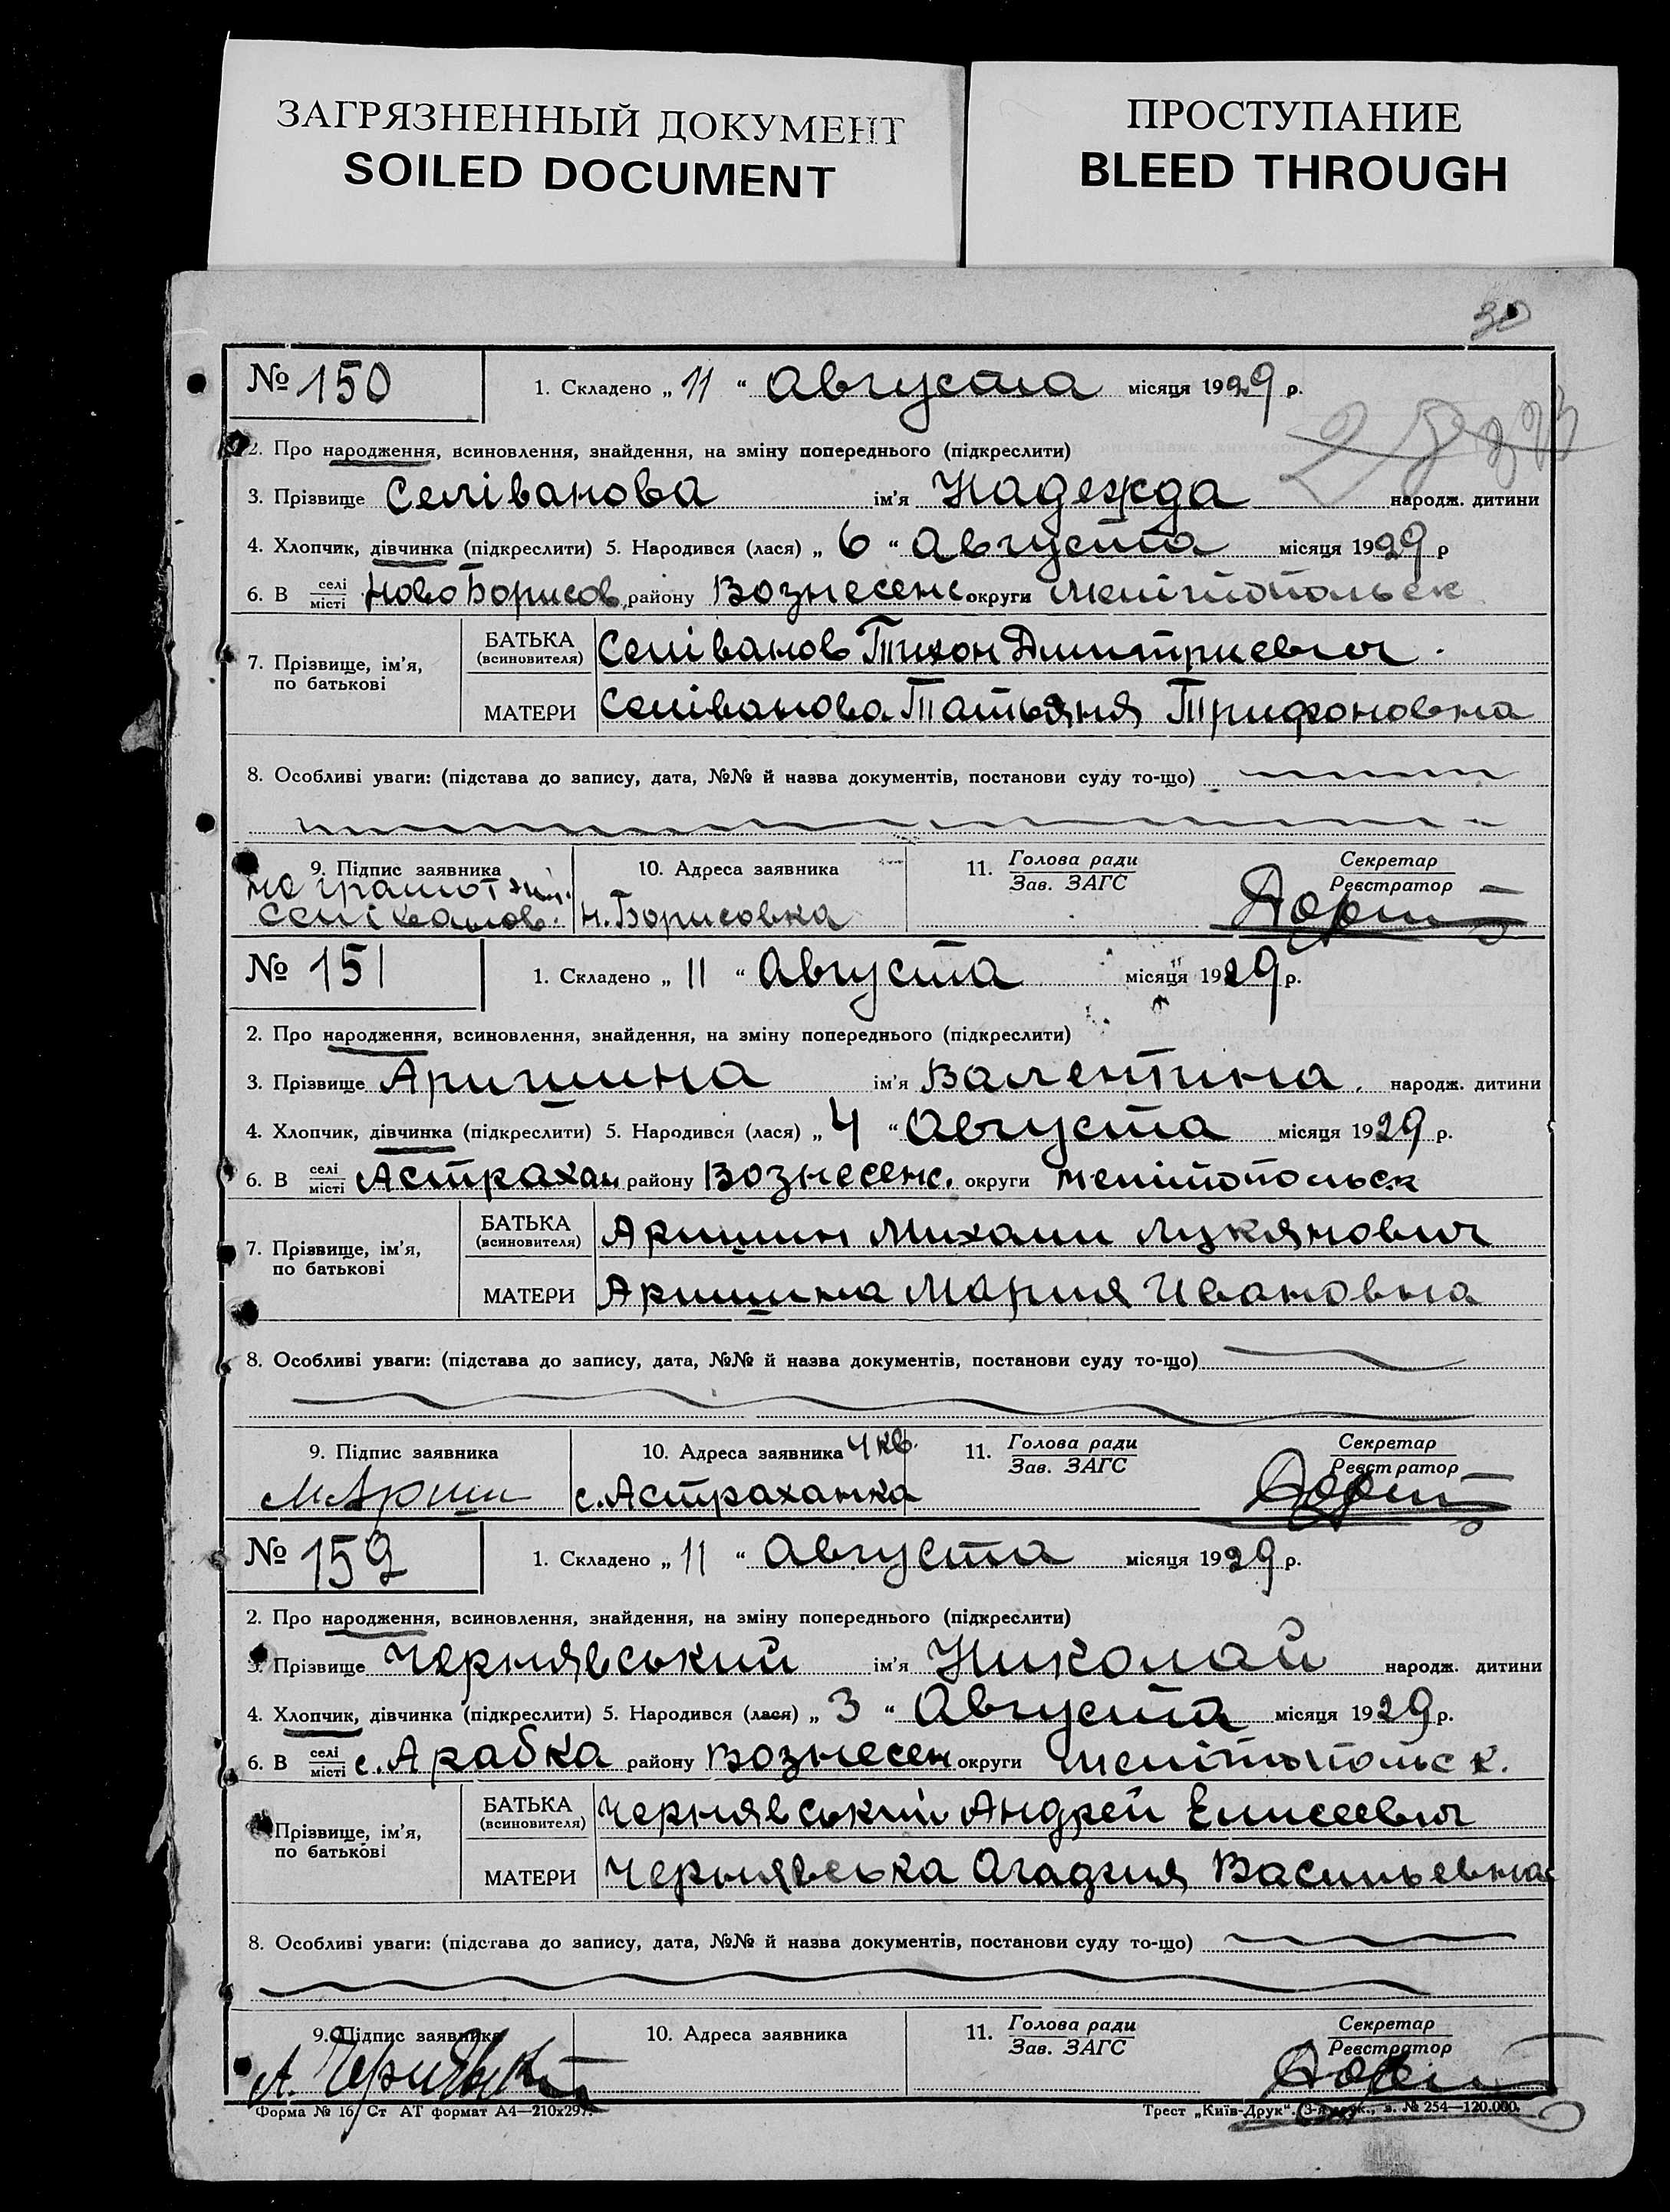 ЗАГРЯЗНЕННЫЙ ДОКУМЕНТ
SOILED DOCUMENT
ПРОСТУПАНИЕ
BLEED THROUGH
30
№ 150 1. Складено „ 11 “ Августа місяця 1929 р.
2. Про народження, всиновлення, знайдення, на зміну попереднього (підкреслити)
3. Прізвище Селіванова ім'я Надежда народж. дитини
4. Хлопчик, дівчинка (підкреслити) 5. Народився (лася) „ 6 “ Августа місяця 1929 р
6. В селі/місті НовоБорисов. району Вознесенс округи Мелітопольск
7. Прізвище, ім'я, по батькові БАТЬКА (всиновителя) Селіванов Тихон Дмитриевич
МАТЕРИ Селіванова Татьяня Трифоновна
8. Особливі уваги: (підстава до запису, дата, №№ й назва документів, постанови суду то-що)
9. Підпис заявника 10. Адреса заявника 11. Голова ради/Зав. ЗАГС Секретар/Реєстратор
Селіванов. Н. Борисовка
№ 151 1. Складено „ 11 “ Августа місяця 1929 р.
2. Про народження, всиновлення, знайдення, на зміну попереднього (підкреслити)
3. Прізвище Аришина ім'я Валентина. народж. дитини
4. Хлопчик, дівчинка (підкреслити) 5. Народився (лася) „ 4 “ Августа місяця 1929 р.
6. В селі/місті Астрахан району Вознесенс. округи Мелітопольск
7. Прізвище, ім'я, по батькові БАТЬКА (всиновителя) Аришин Михаил Лукянович
МАТЕРИ Аришина Мария Ивановна
8. Особливі уваги: (підстава до запису, дата, №№ й назва документів, постанови суду то-що)
9. Підпис заявника 10. Адреса заявника 4 кв. 11. Голова ради/Зав. ЗАГС Секретар/Реєстратор
М Ариш с. Астраханка
№ 152 1. Складено „ 11 “ Августа місяця 1929 р.
2. Про народження, всиновлення, знайдення, на зміну попереднього (підкреслити)
3. Прізвище Чернявський ім'я Николай народж. дитини
4. Хлопчик, дівчинка (підкреслити) 5. Народився (лася) „ 3 “ Августа місяця 1929 р.
6. В селі/місті с. Арабка району Вознесен округи Мелітопольск.
Прізвище, ім'я, по батькові БАТЬКА (всиновителя) Чернявський Андрей Елисеевич
МАТЕРИ Чернявська Агадгия Васильевна
8. Особливі уваги: (підстава до запису, дата, №№ й назва документів, постанови суду то-що)
9. Підпис заявника 10. Адреса заявника 11. Голова ради/Зав. ЗАГС Секретар/Реєстратор
Форма № 16, Ст АТ формат А4—210х297. Трест „Київ-Друк“. з. № 254—120.000.